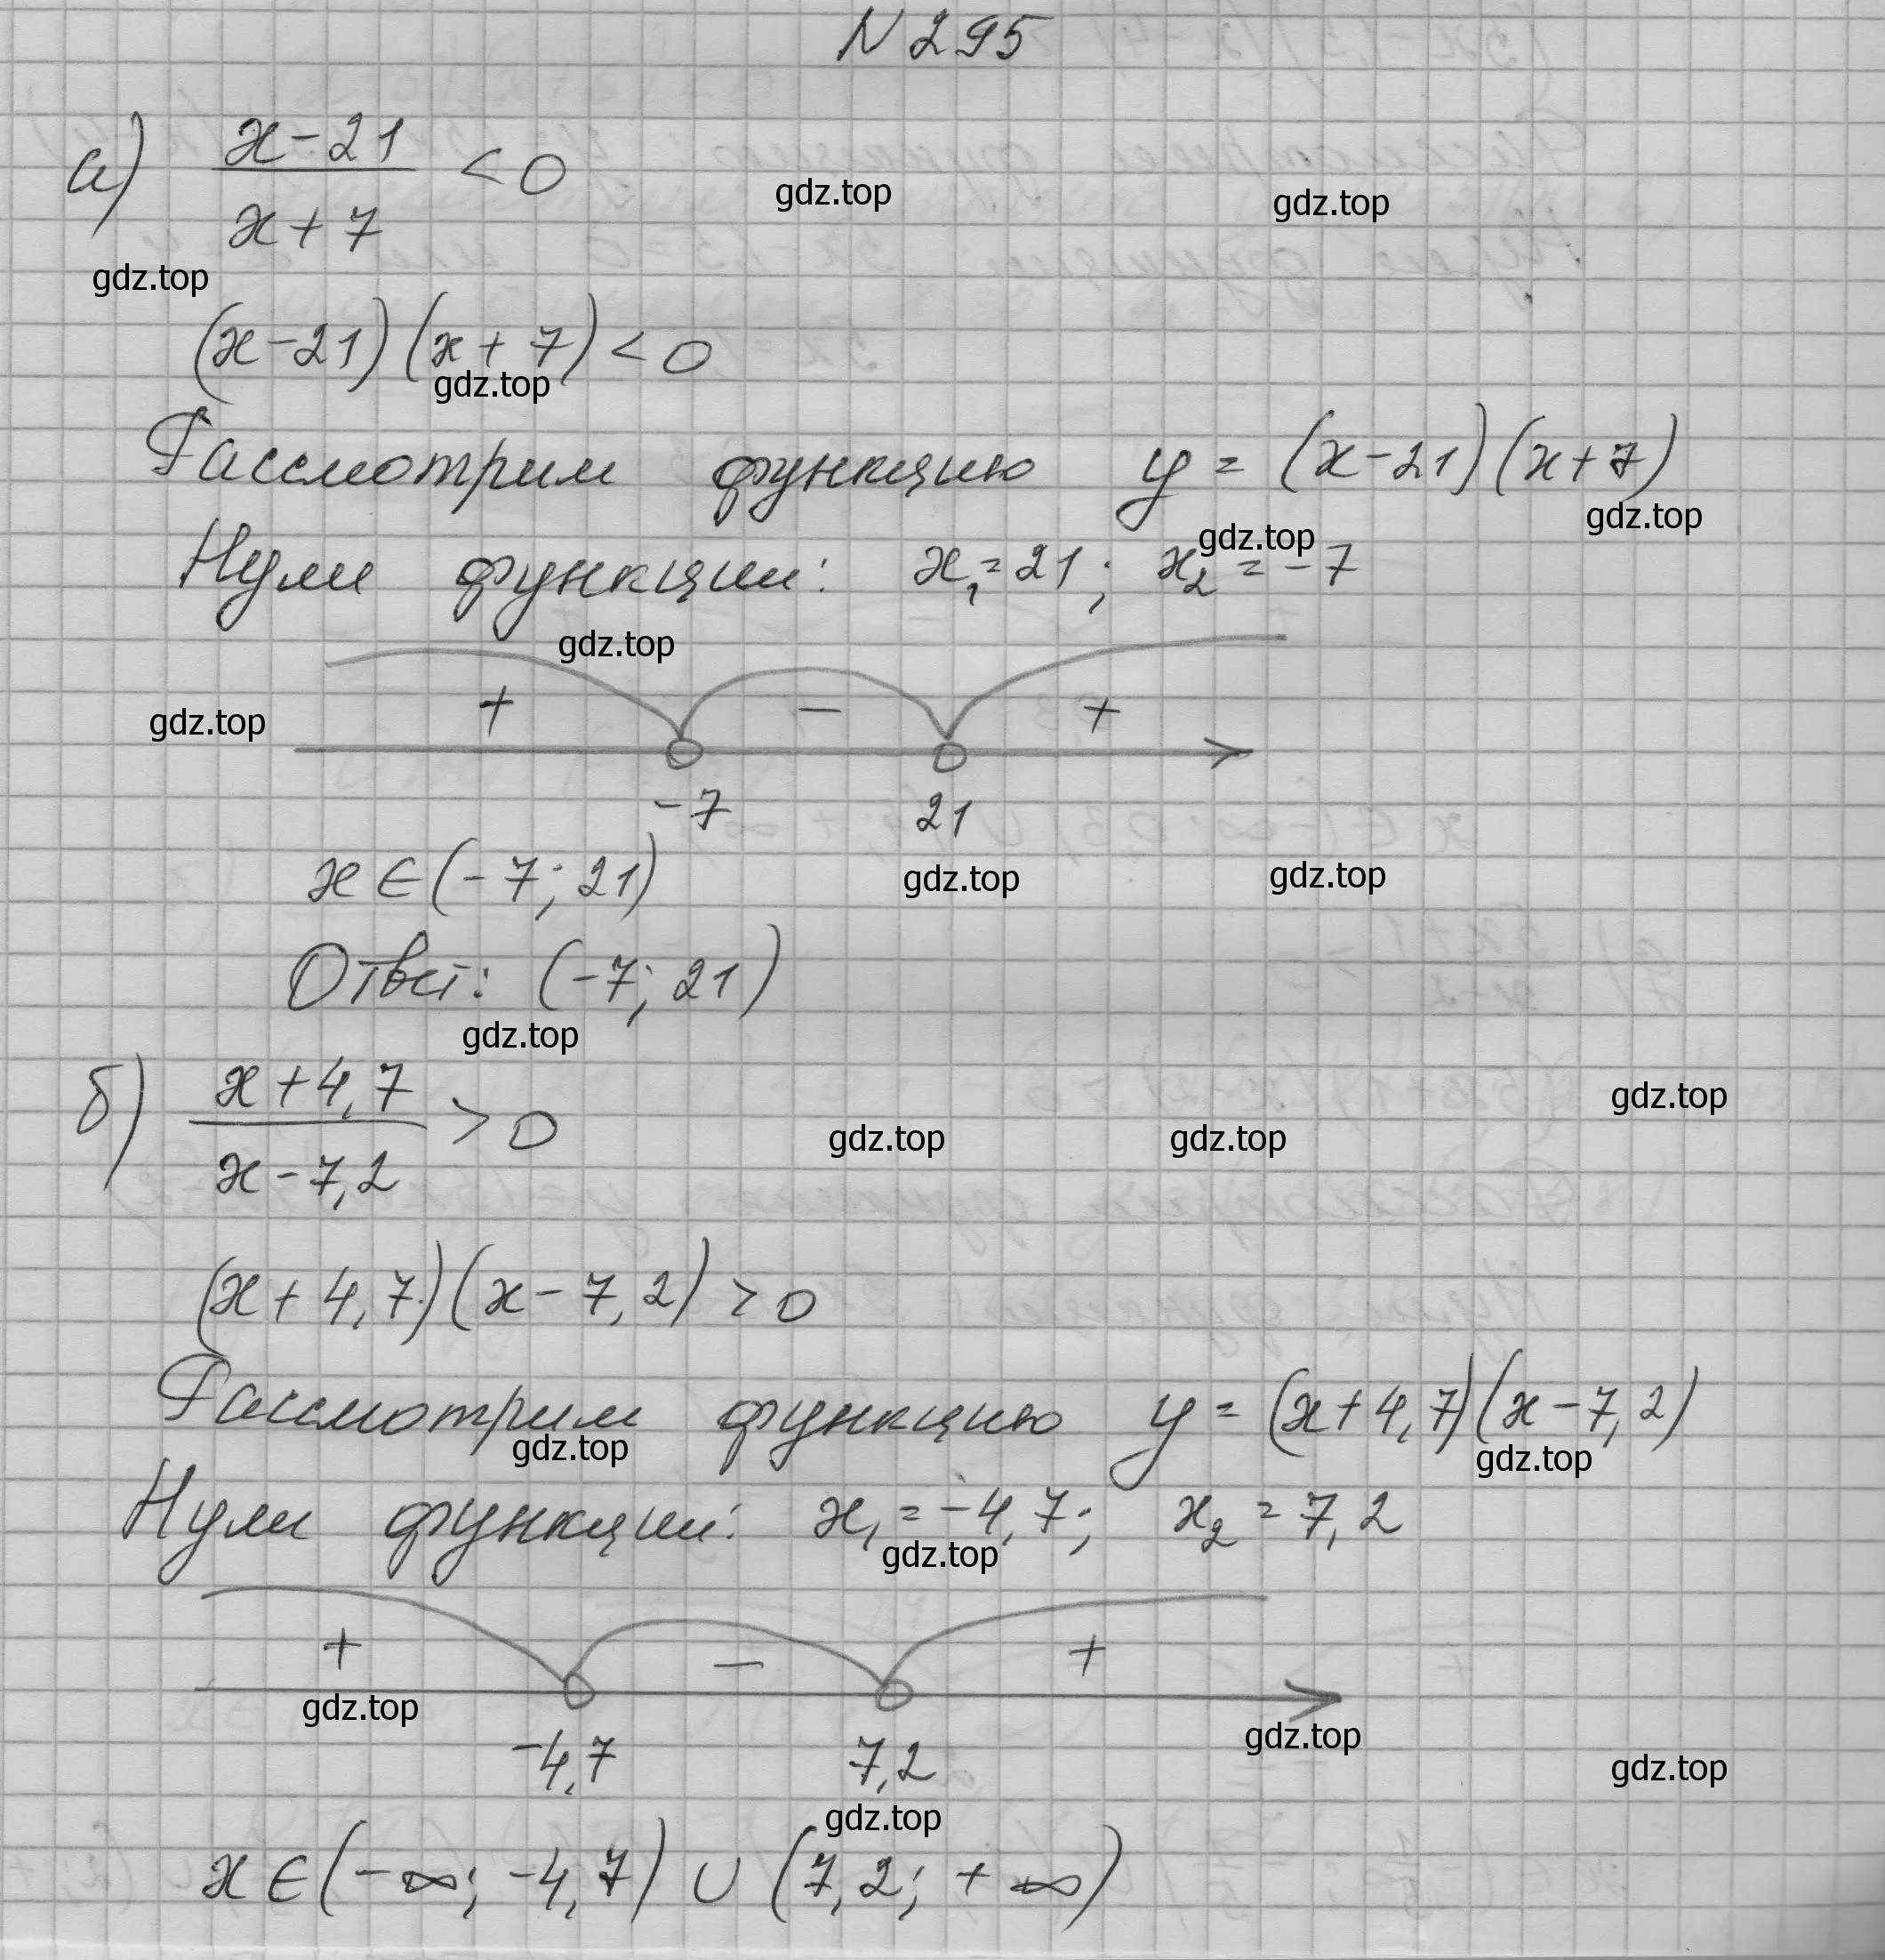 N 295
а) x-21 / x+7 < 0
gdz.top gdz.top
gdz.top
(x-21)(x+7)<0
gdz.top
Рассмотрим функцию y = (x-21)(x+7)
gdz.top gdz.top
Нули функции: x₁=21; x₂=-7
gdz.top
gdz.top + - +
-7 21
x∈(-7; 21) gdz.top gdz.top
Ответ: (-7; 21)
gdz.top
б) x+4,7 / x-7,2 > 0
gdz.top
gdz.top gdz.top
(x+4,7)(x-7,2)>0
Рассмотрим функцию y = (x+4,7)(x-7,2)
gdz.top gdz.top
Нули функции: x₁=-4,7; x₂=7,2
gdz.top
+ - +
gdz.top gdz.top
-4,7 7,2 gdz.top
gdz.top
x∈(-∞; -4,7) ∪ (7,2; +∞)